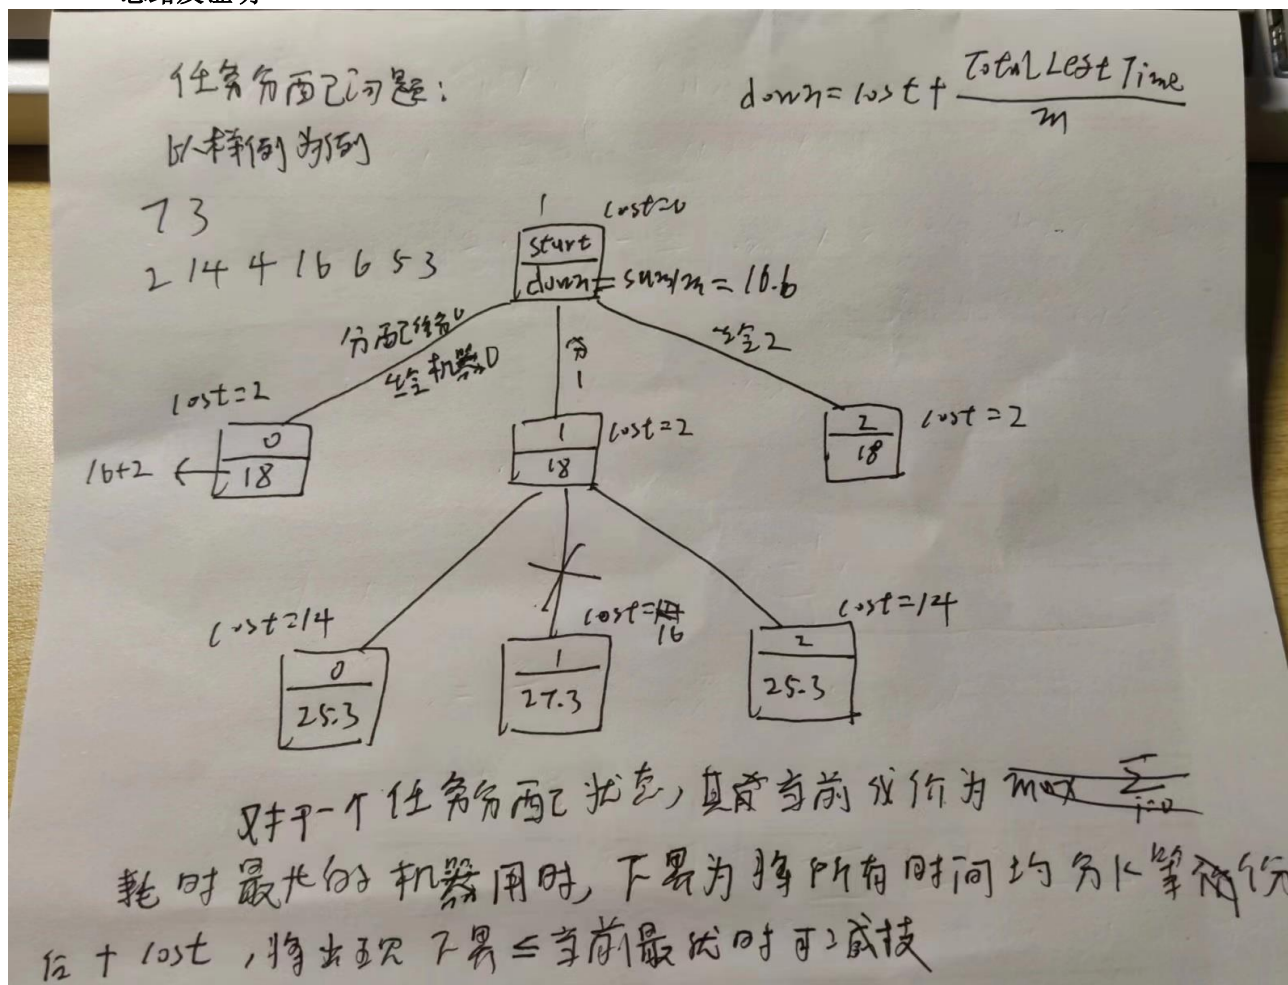 任务分配问题:
down = cost + Total Lest Time / m
以样例为例
7 3
2 14 4 16 6 5 3
1 cost=0
start
down = sum/m = 16.6
分配任务0
给机器0
分
1
给2
cost=2
0
18
16+2
1
18
cost=2
2
18
cost=2
cost=14
0
25.3
cost=16
1
27.3
cost=14
2
25.3
对于一个任务分配状态,其当前代价为
耗时最大的机器用时,下界为将所有时间均分K等份
后 + cost ,将出现下界≤当前最优时可以减枝